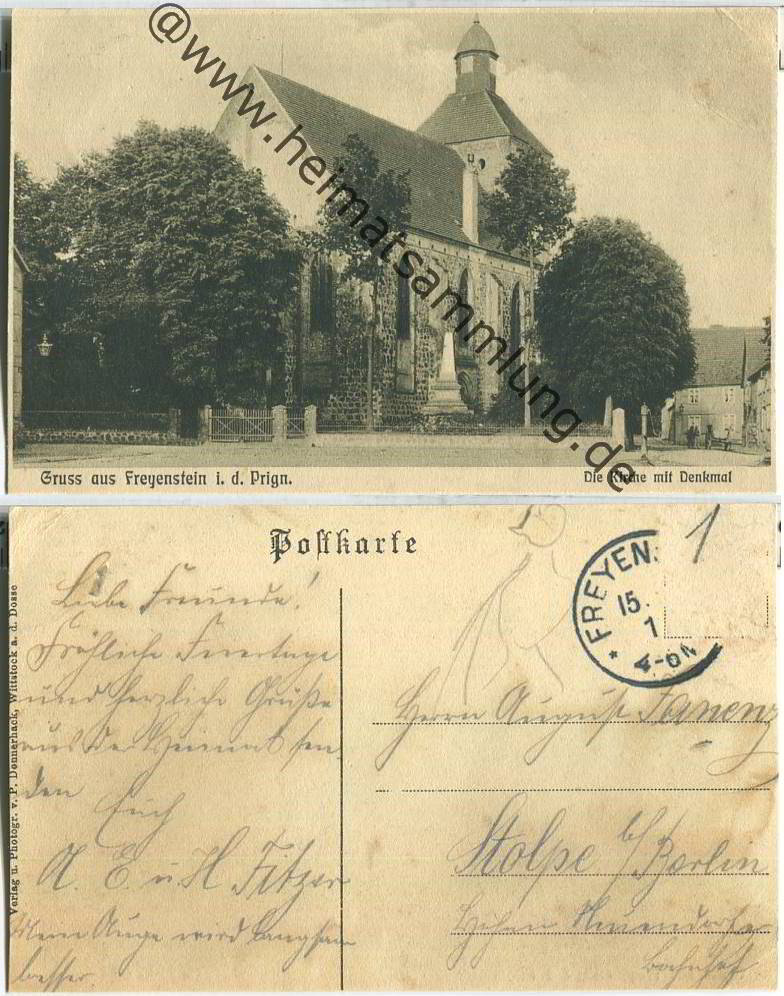 @www.heimatsammlung.de
Gruss aus Freyenstein i. d. Prign.
Die Kirche mit Denkmal
Postkarte
Verlag u. Photogr. v. P. Donnerhack, Wittstock a. d. Dosse
Liebe Freunde!
Fröhliche Feiertage
und herzliche Grüße
aus der Heimat sen-
den
Euch
A. E. u. H. Fitzer
Mein Auge wird langsam
besser.
1
* FREYEN
15.
1
4-5N
Herrn August
Stolpe b/Berlin
Neuendorfer
Bahnhof.